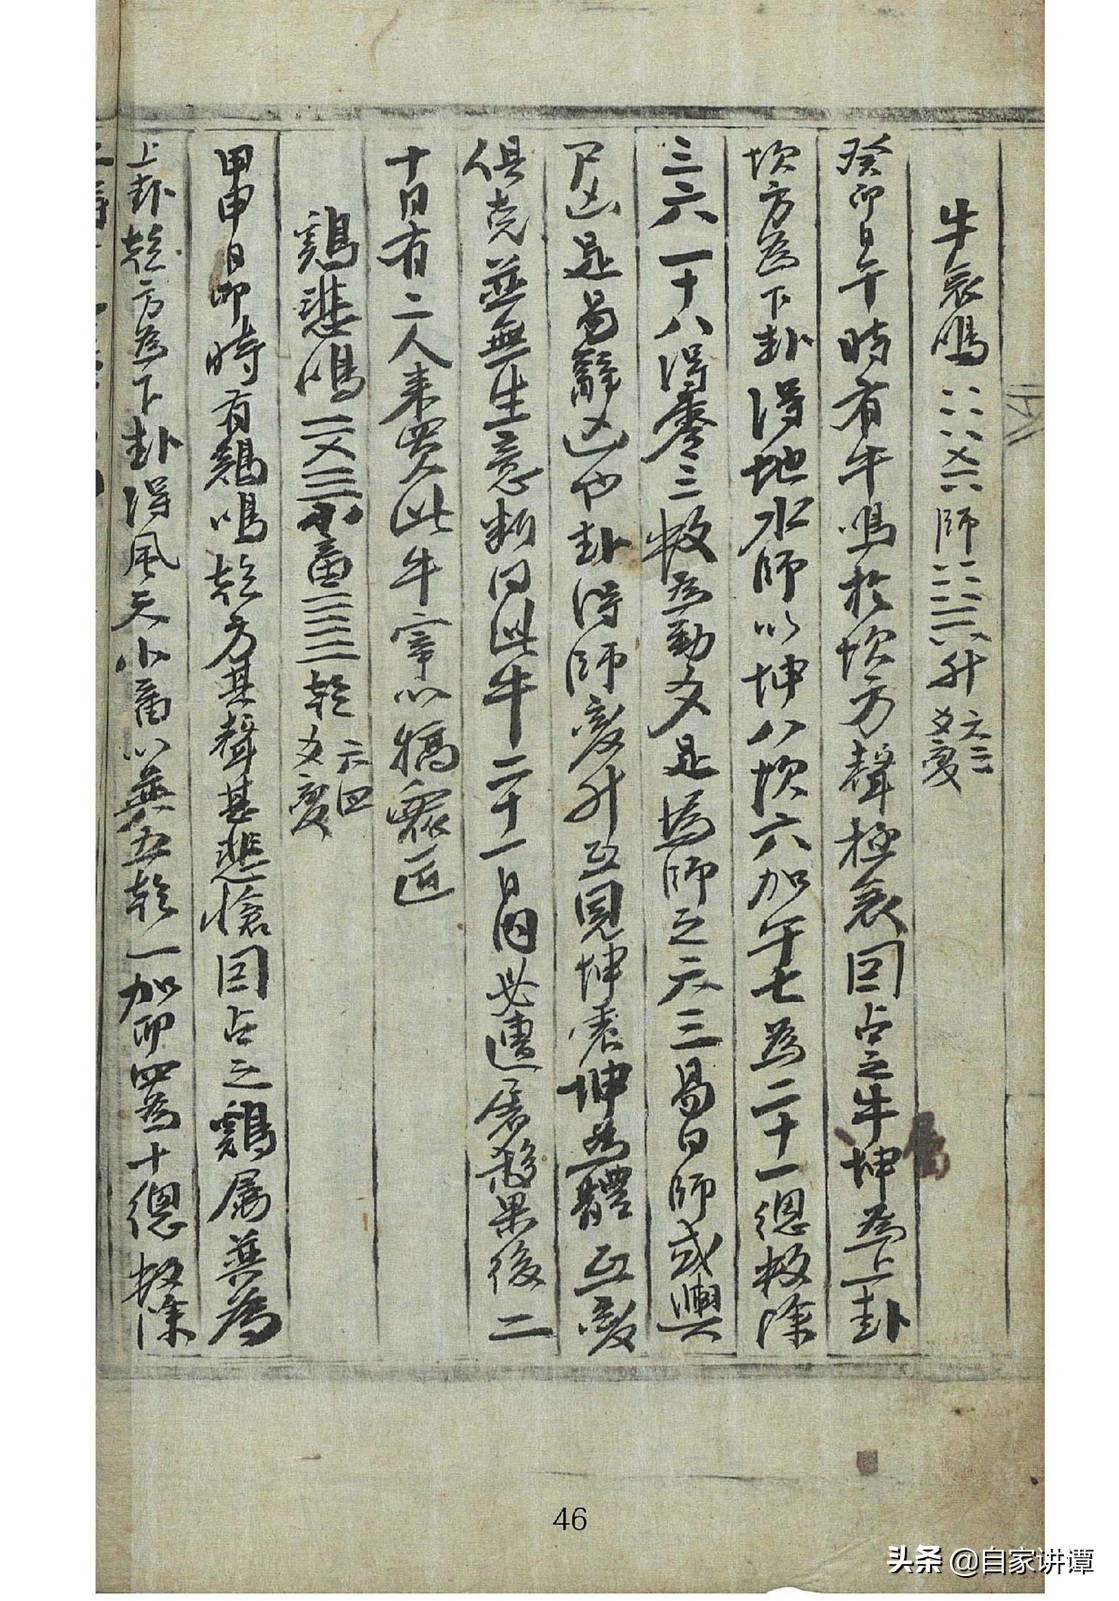 牛哀鳴 師 升 六三爻變
癸卯日午時有牛鳴於坎方聲極哀因占之牛屬坤為上卦
坎方為下卦得地水師以坤八坎六加午七為二十一總数除
三六一十八得零三数為動爻是為師之六三易曰師或輿
尸凶是易辭凶也卦得師變升互見坤震坤為體互變
俱克並無生意断曰此牛二十一日内必遭屠殺果後二
十日有二人来買此牛宰以犒衆匠
鷄悲鳴 小畜 乾 六四爻變
甲申日卯時有鷄鳴乾方其聲甚悲愴因占之鷄属巽為
上卦乾方為下卦得風天小畜以巽五乾一加卯四為十總数除
46
头条 @自家讲谭